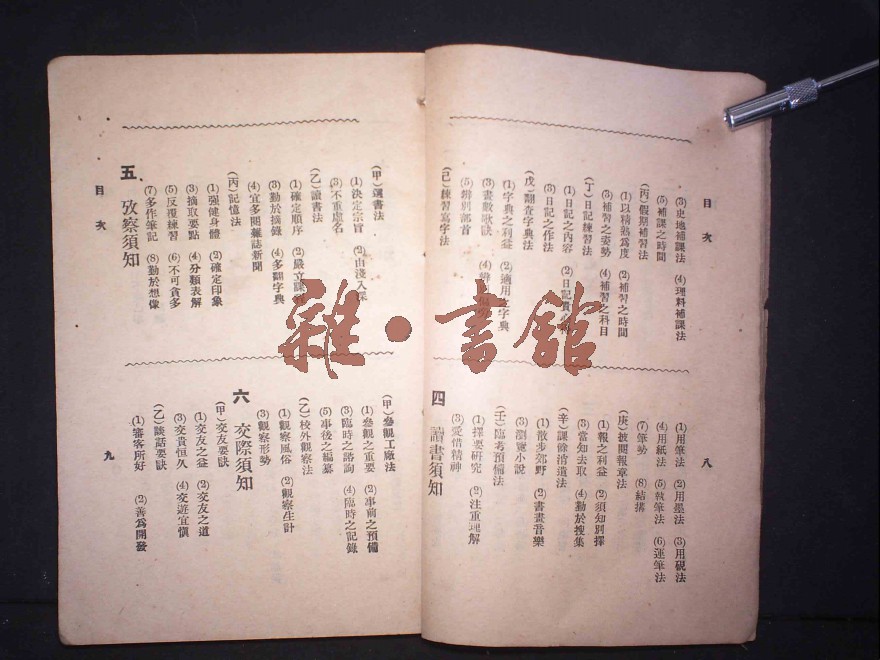 目次
(3)史地補課法 (4)理科補課法
(5)補課之時間
(丙)假期補習法
(1)以精熟為度 (2)補習之時間
(3)補習之姿勢 (4)補習之科目
(丁)日記練習法
(1)日記之內容 (2)日記貴
(3)日記之作法
(戊)翻查字典法
(1)字典之利益 (2)適用之字典
(3)畫數歌訣 (4)
(5)辨別部首
(己)練習寫字法
(1)用筆法 (2)用墨法 (3)用硯法
(4)用紙法 (5)執筆法 (6)運筆法
(7)筆勢 (8)結構
(庚)披閱報章法
(1)報之利益 (2)須知別擇
(3)當知去取 (4)勤於搜集
(辛)課餘消遣法
(1)散步郊野 (2)書畫音樂
(3)瀏覽小說
(壬)臨考預備法
(1)擇要研究 (2)注重理解
(3)愛惜精神
四 讀書須知
八
(甲)選書法
(1)決定宗旨 (2)由淺入深
(3)不重虛名
(乙)讀書法
(1)確定順序 (2)嚴立課
(3)勤於摘錄 (4)多翻字典
(4)宜多閱雜誌新聞
(丙)記憶法
(1)強健身體 (2)確定印象
(3)摘取要點 (4)分類表解
(5)反覆練習 (6)不可貪多
(7)多作筆記 (8)勤於想像
五、攷察須知
目次
(甲)參觀工廠法
(1)參觀之重要 (2)事前之預備
(3)臨時之諮詢 (4)臨時之記錄
(5)事後之編纂
(乙)校外觀察法
(1)觀察風俗 (2)觀察生計
(3)觀察形勢
六 交際須知
(甲)交友要訣
(1)交友之益 (2)交友之道
(3)交貴恒久 (4)交遊宜慎
(乙)談話要訣
(1)審客所好 (2)善為開發
九
雜·書館